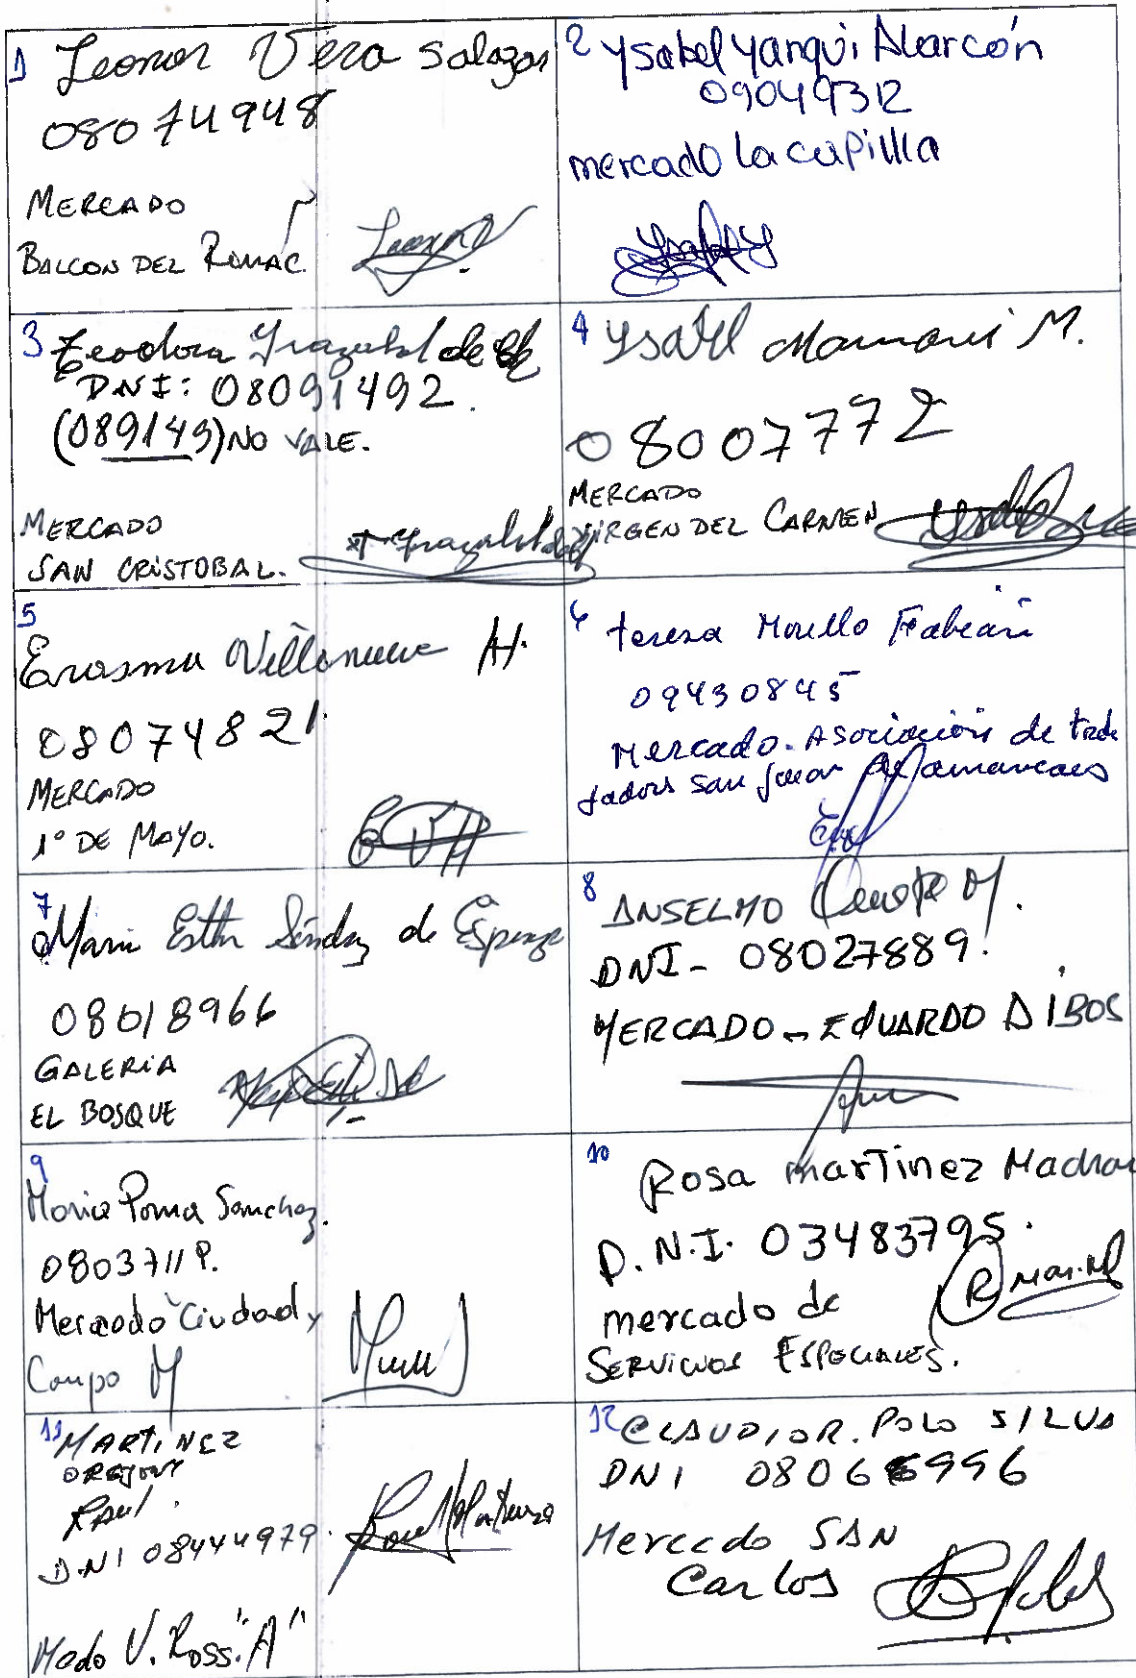 1 Leonor Vera Salazar
08074948
MERCADO
BALCON DEL RIMAC.
2 Ysabel Yanqui Alarcón
09049312
mercado la capilla
3 Teodora Yrazabal de
DNI: 08091492.
(089149) NO VALE.
MERCADO
SAN CRISTOBAL.
4 Ysabel Mamani M.
08007772
MERCADO
VIRGEN DEL CARMEN
5
Erasma Villanueva H.
08074821
MERCADO
1º DE MAYO.
6 teresa Morillo Fabian
09430845
Mercado. Asociación de traba
jadors san Juan Amancaes
7
Maria Esther Sánchez de Espinoza
08018966
GALERIA
EL BOSQUE
8 ANSELMO M.
DNI- 08027889.
MERCADO - EDUARDO DIBOS
9
Maria Poma Sanchez.
0803711
Mercado Ciudad y
Campo M
10 Rosa martinez Madrid
D.N.I. 03483795.
mercado de
SERVICIOS ESPECIALES.
11 MARTINEZ
Raul
DNI 08444979.
Mcdo V. Ross. "A"
12 CLAUDIO R. POLO SILVA
DNI 08066996
Mercado SAN
Carlos